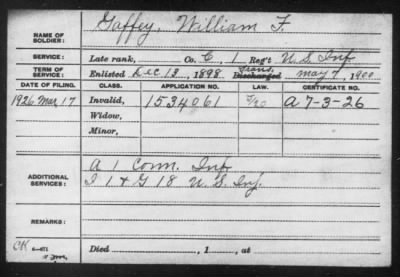 NAME OF SOLDIER: Gaffey, William F.
SERVICE: Late rank, Co. C, 1 Reg't U.S. Inf
TERM OF SERVICE: Enlisted Dec 13, 1898, Trans. Discharged May 7, 1900
DATE OF FILING. CLASS. APPLICATION NO. LAW. CERTIFICATE NO.
1926 Mar 17 Invalid, 1534061 A 7-3-26
Widow,
Minor,
ADDITIONAL SERVICES: A 1 Conn. Inf
I 1 & G 18 U.S. Inf.
REMARKS:
CK
Died , 1 , at